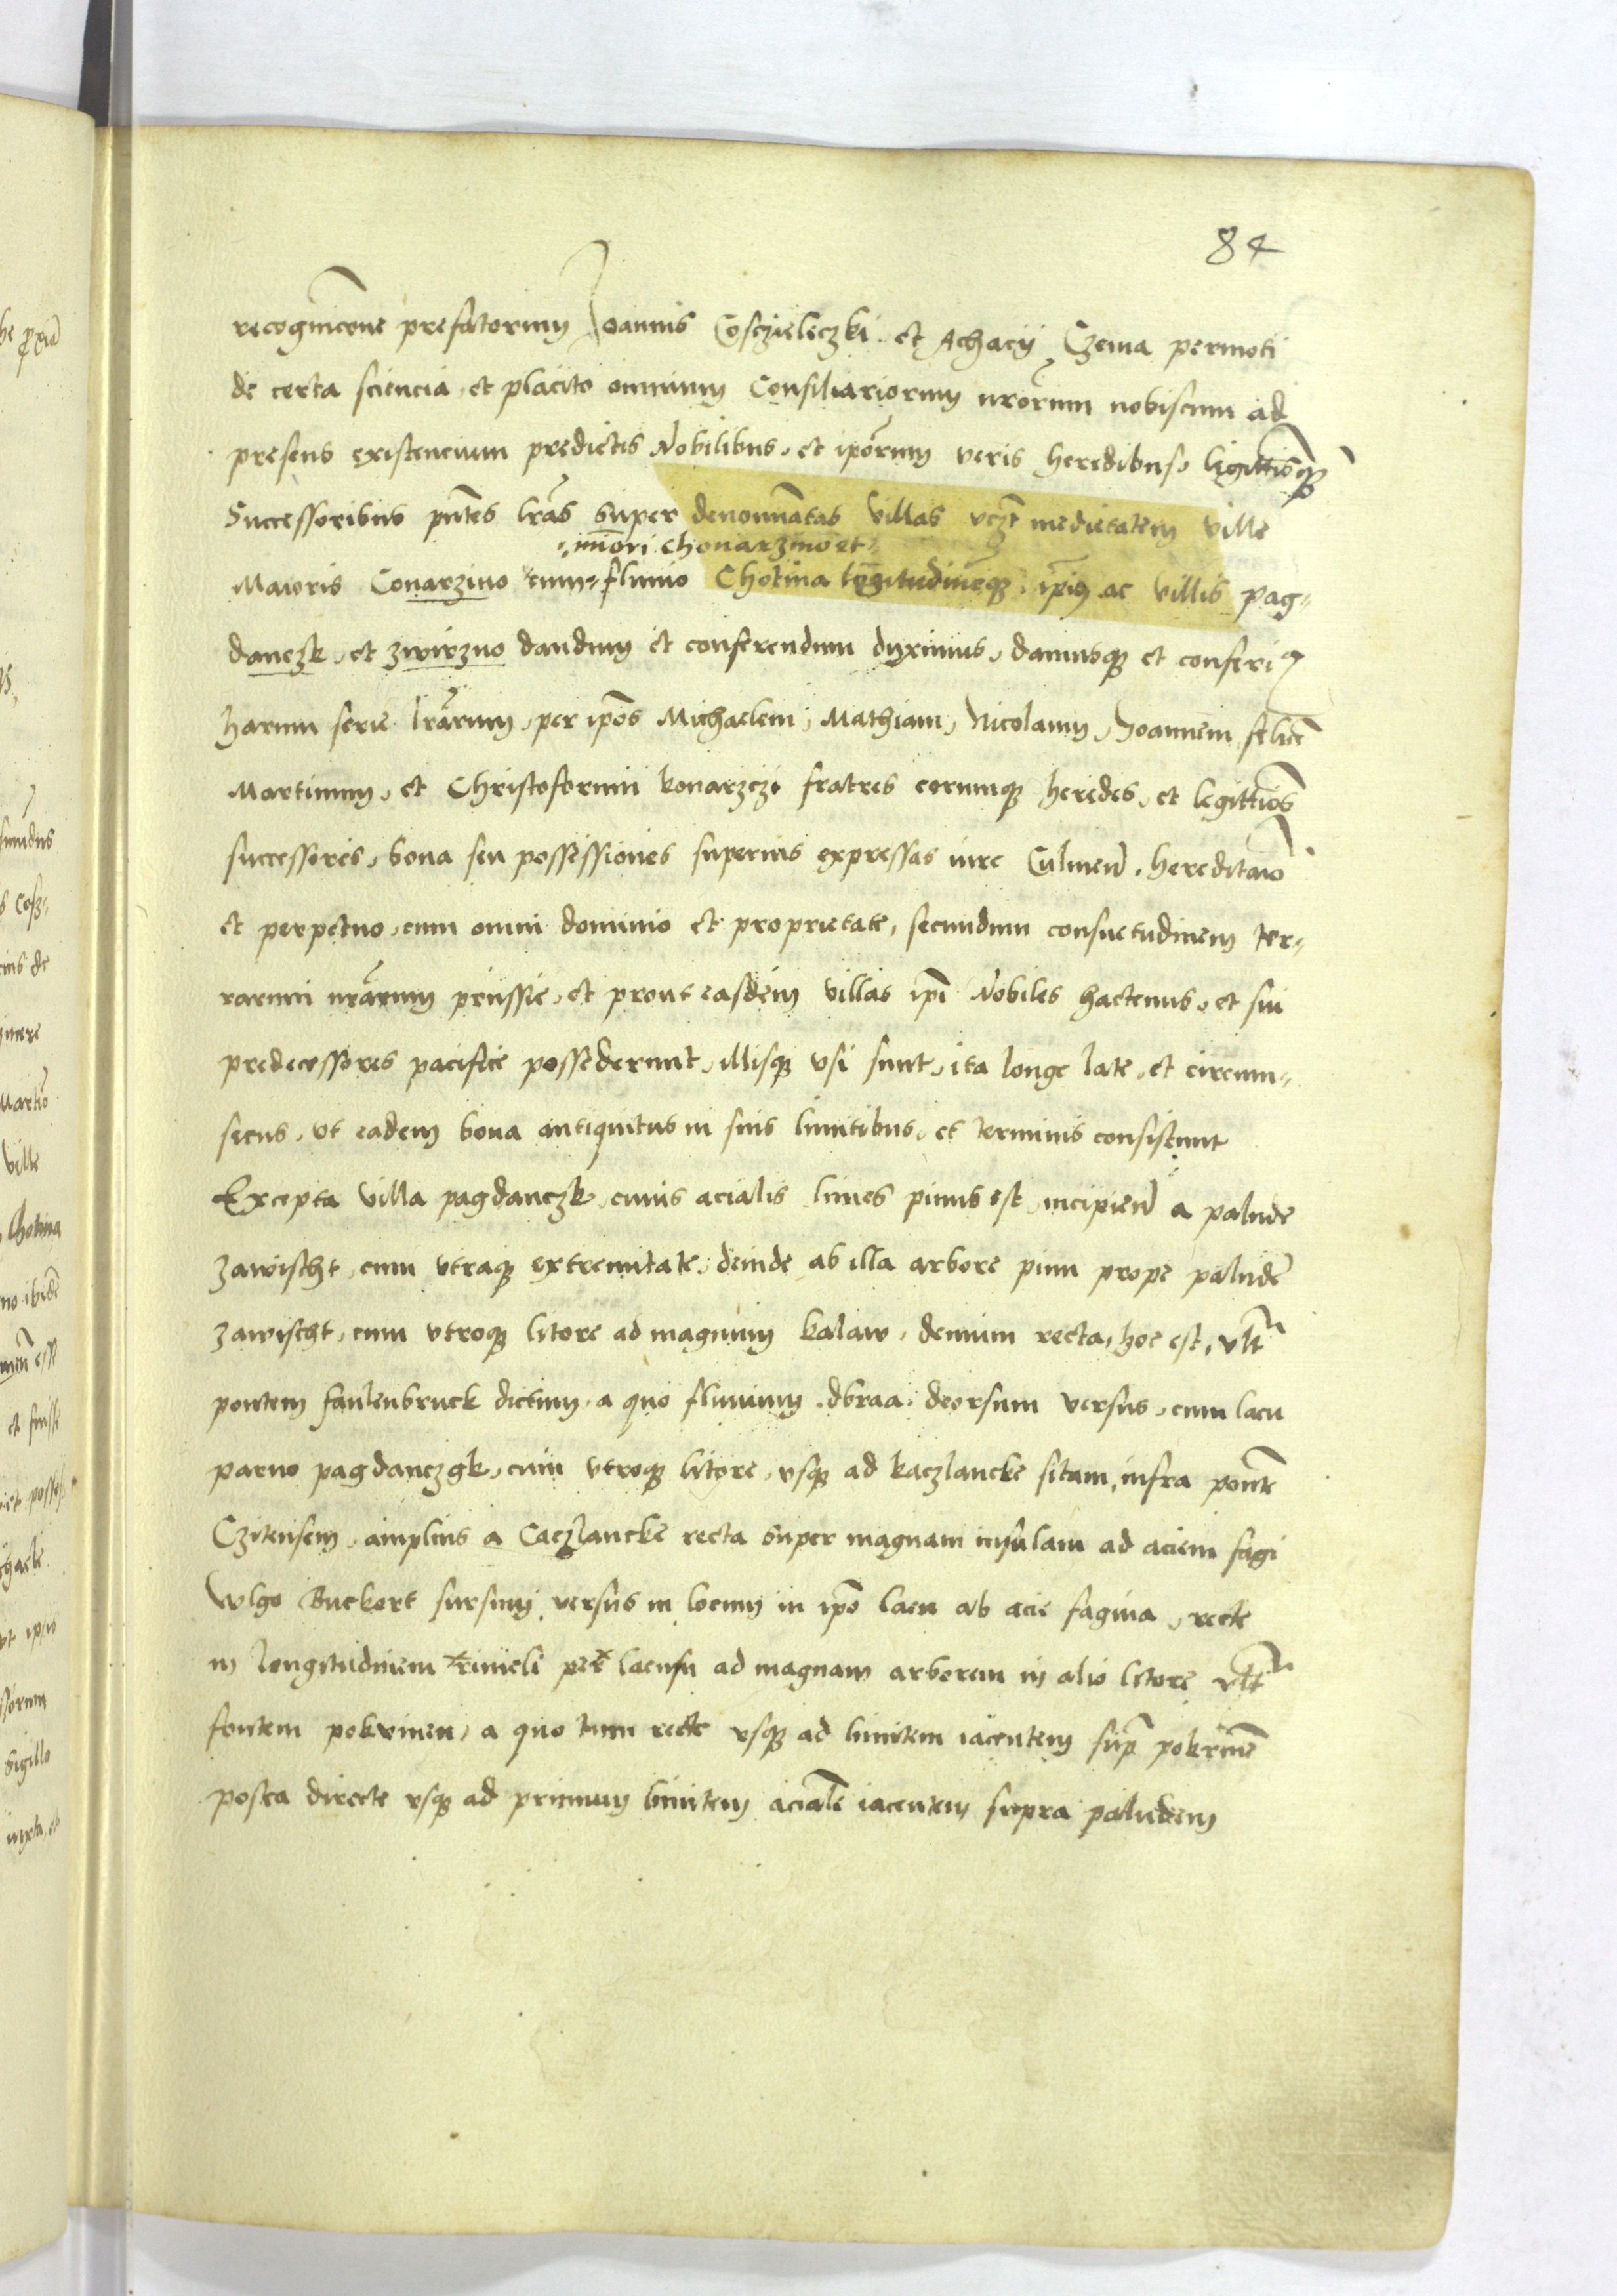 84
recognicōne prefatorum Joannis Cosczieleczki et Achacij Czema permoti
de certa sciencia, et placito omnium Consiliariorum nrōrum nobiscum ad
presens existencium predictis Nobilibus, et ipōrum veris heredibus, legittīsqꝫ
Successoribus pntēs lrās super denomīatas villas vczt medietatem ville
miōri Chonarzino et
Maioris Conarzino cum fluuio Chotina lōgitudinēqꝫ ip̄ius ac villis pag-
danczk, et zwirzno dandum et conferendum duximus, damusqꝫ et conferiꝰ
harum serie lrārum, per ipōs Michaelem, Mathiam, Nicolaum, Joannem, felicē
Martinum, et Christoforum konarzczi fratres eorumqꝫ heredes, et legittiōs
successores, bona seu possessiones superius expressas iure Culmeñ. hereditaīo
et perpetuo, cum omni dominio et proprietate, secundum consuetudinem ter-
rarum nrārum prussie, et prout easdem villas ipī Nobiles hactenus, et sui
predecessores pacifice possederunt, illisqꝫ vsi sunt, ita longe late, et circum-
secus, vt eadem bona antiquitus in suis limitibus, et terminis consistunt
Excepta villa pagdanczk, cuius acialis limes pinus est, incipieñ a palude
zawischt, cum vtraqꝫ extremitate, deinde ab illa arbore pinu prope paludē
zawischt, cum vtroqꝫ litore ad magnum kalaw, demum recta, hoc est, vlt̄
pontem faulenbruck dictum, a quo fluuium dbraa, deorsum versus, cum lacu
paruo pagdanczgk, cum vtroqꝫ litore, vsqꝫ ad kaczlancke sitam, infra pontē
Czitensem, amplius a Caczlancke recta super magnam insulam ad aciem fagi
wlgo Buckort sursum versus in locum in ipō lacu ab acie fagina, recte
in longitudinem per lacum ad magnam arborem in alio litore vlt̄
fontem pokrinen, a quo tum recte vsqꝫ ad limitem iacentem sup̄ pokrinē
postea directe vsqꝫ ad primum limitem acialē iacentem supra paludem